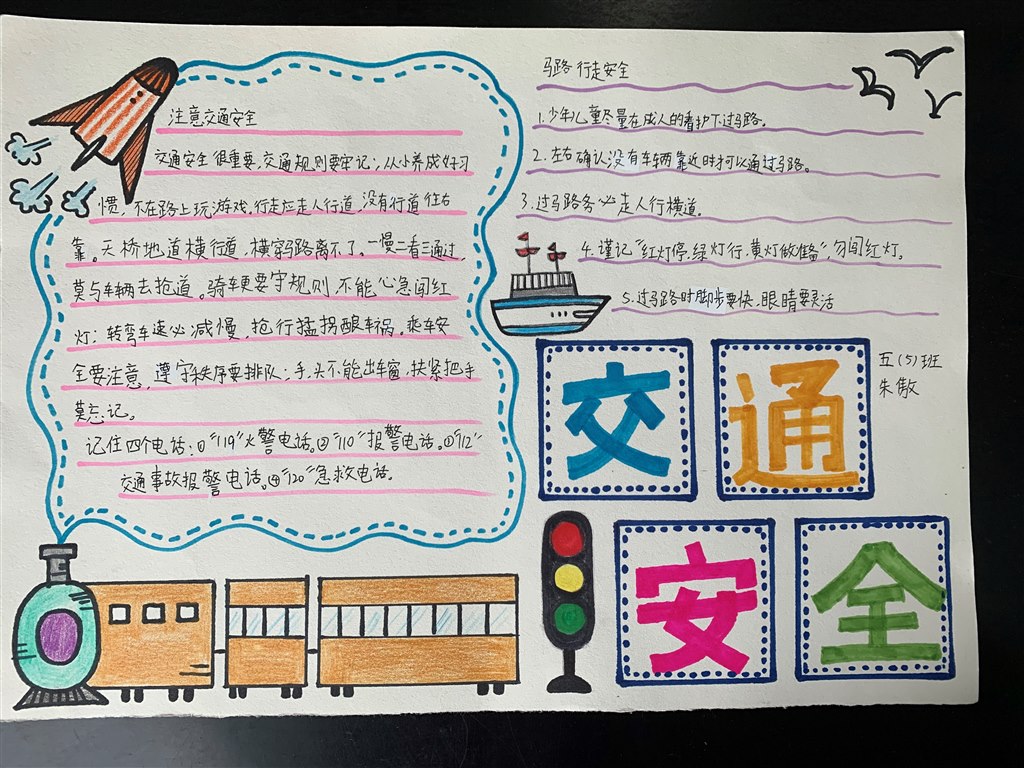 注意交通安全
交通安全很重要,交通规则要牢记;从小养成好习
惯,不在路上玩游戏.行走应走人行道,没有行道往右
靠。天桥地道横行道,横穿马路离不了.一慢二看三通过,
莫与车辆去抢道。骑车更要守规则,不能心急闯红
灯;转弯车速必减慢,抢行猛拐酿车祸.乘车安
全要注意,遵守秩序要排队;手,头不能出车窗,扶紧把手
莫忘记。
记住四个电话:①"119"火警电话.②"110"报警电话.①"112"
交通事故报警电话.④"120"急救电话.
马路行走安全
1.少年儿童尽量在成人的看护下过马路。
2.左右确认没有车辆靠近时才可以通过马路。
3.过马路务必走人行横道.
4.谨记"红灯停.绿灯行,黄灯做准备",勿闯红灯.
5.过马路时脚步要快,眼睛要灵活
五(5)班
朱傲
交通
安全